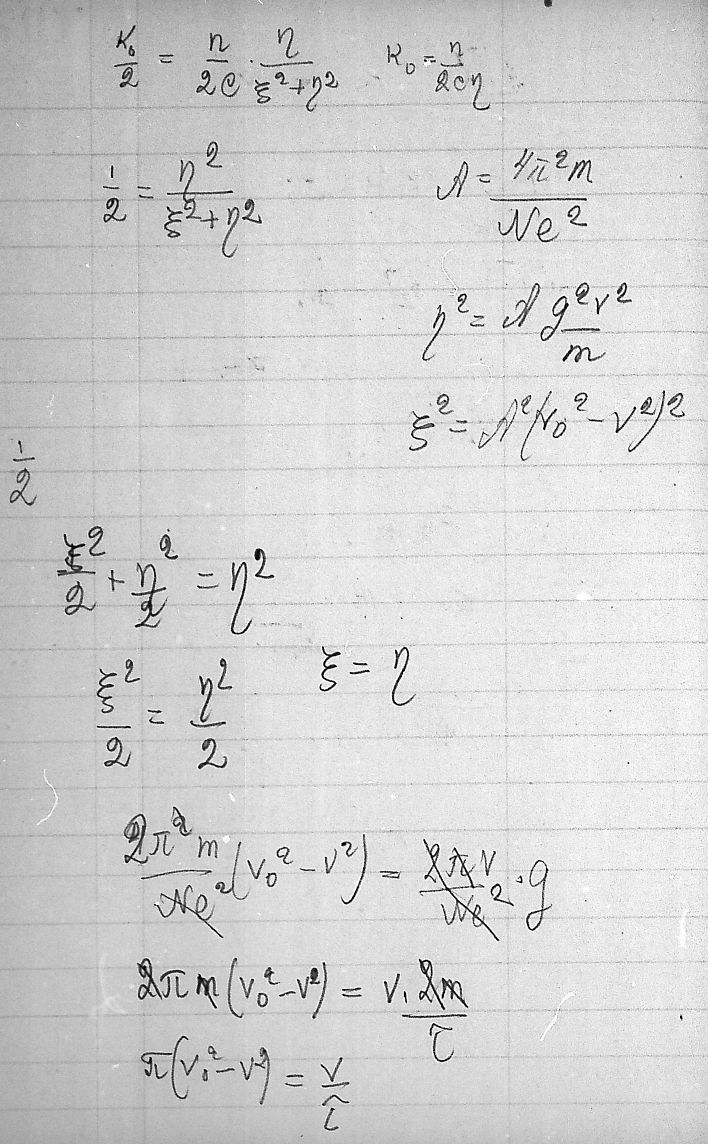 K₀/2 = n/2c · η/(ξ²+η²) K₀ = n/2cη
1/2 = η²/(ξ²+η²) A = 4π²m/Ne²
η² = A g²ν²/m
ξ² = A²(ν₀²-ν²)²
1/2
ξ²/2 + η²/2 = η²
ξ²/2 = η²/2 ξ = η
2π²m/Ne² (ν₀²-ν²) = 2πν/Ne² · g
2πm(ν₀²-ν²) = ν · 2m/τ
π(ν₀²-ν²) = ν/τ